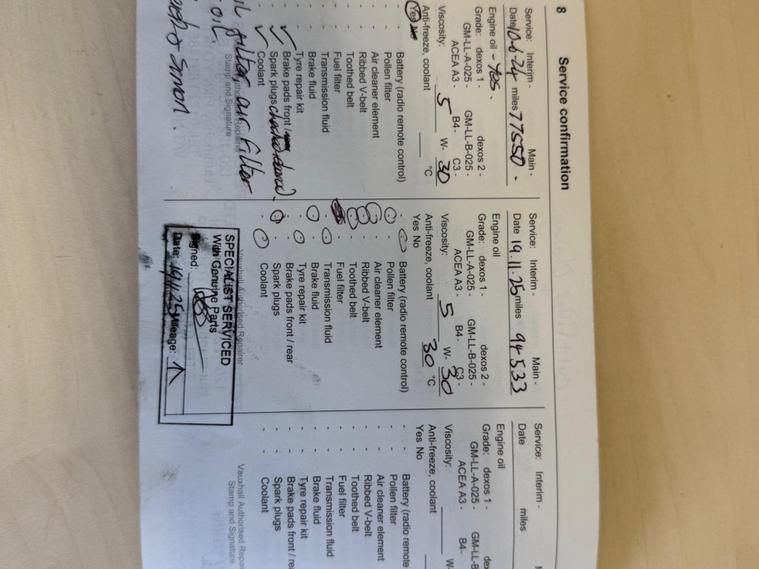 8
Service confirmation
Service: Interim - Main -
Date 10.6.24 miles 77550 .
Engine oil - yes .
Grade: dexos 1 - dexos 2 -
GM-LL-A-025 - GM-LL-B-025 -
ACEA A3 - B4 - C3 -
Viscosity: 5 W- 30
Anti-freeze, coolant °C
Yes
- Battery (radio remote control)
- Pollen filter
- Air cleaner element
- Ribbed V-belt
- Toothed belt
- Fuel filter
- Transmission fluid
- Brake fluid
- Tyre repair kit
- Brake pads front /
- Spark plugs
- Coolant
filter, air filter
oil.
Stamp and Signature
Service: Interim - Main -
Date 19.11.25 miles 94533
Engine oil
Grade: dexos 1 - dexos 2 -
GM-LL-A-025 - GM-LL-B-025 -
ACEA A3 - B4 - C3 -
Viscosity: 5 W- 30
Anti-freeze, coolant 30 °C
Yes No
- Battery (radio remote control)
- Pollen filter
- Air cleaner element
- Ribbed V-belt
- Toothed belt
- Fuel filter
- Transmission fluid
- Brake fluid
- Tyre repair kit
- Brake pads front / rear
- Spark plugs
- Coolant
Vauxhall Authorised Repairer
SPECIALIST SERVICED
With Genuine Parts
Signed:
Date: 19/11/25 Mileage:
Service: Interim -
Date miles
Engine oil
Grade: dexos 1 -
GM-LL-A-025 - GM-LL-B
ACEA A3 - B4 -
Viscosity: W-
Anti-freeze, coolant
Yes No
- Battery (radio remote
- Pollen filter
- Air cleaner element
- Ribbed V-belt
- Toothed belt
- Fuel filter
- Transmission fluid
- Brake fluid
- Tyre repair kit
- Brake pads front / re
- Spark plugs
- Coolant
Vauxhall Authorised Repa
Stamp and Signature